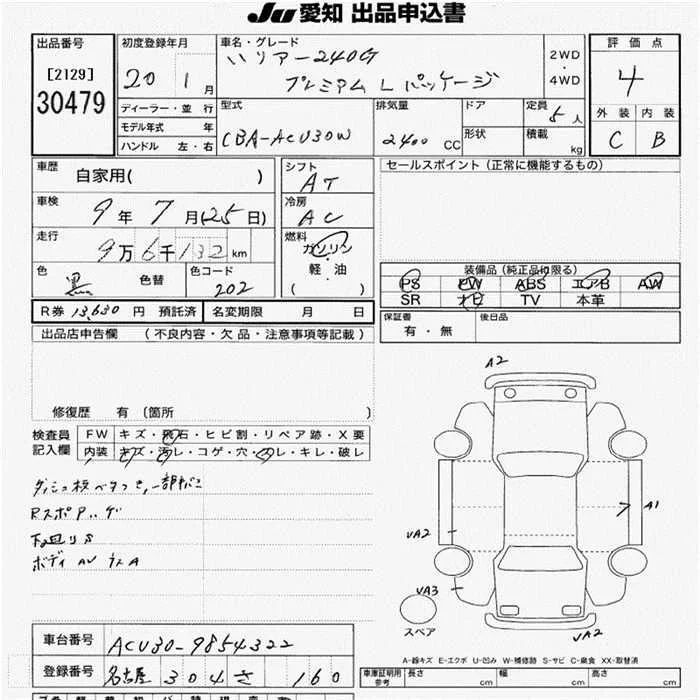 JU 愛知 出品申込書
出品番号
[2129]
30479
初度登録年月
20 1月
車名・グレード
ハリアー240G
プレミアム L パッケージ
2WD
・
4WD
評価点
4
外装 内装
C B
ディーラー・並 行
モデル年式 年
ハンドル 左・右
型式
CBA-ACU30W
排気量
2400 CC
ドア
形状
定員
5人
積載
kg
車歴
自家用( )
車検
9年 7月(25日)
走行
9万6千132km
色
黒
色替
色コード
202
シフト
AT
冷房
AC
燃料
ガソリン
軽・油
( )
セールスポイント (正常に機能するもの)
装備品(純正品に限る)
PS PW ABS エアB AW
SR ナビ TV 本革
R券 13,630 円 預託済
名変期限 月 日
保証書
有・無
後日品
出品店申告欄 (不良内容・欠品・注意事項等記載)
修復歴 有(箇所 )
検査員
記入欄
FW キズ・飛石・ヒビ割・リペア跡・X要
内装 キズ・汚レ・コゲ・穴・スレ・キレ・破レ
RスポAハゲ
A2
A1
UA2
UA3
UA2
スペア
A-線キズ E-エクボ U-凹み W-補修跡 S-サビ C-腐食 XX-取替済
車台番号
ACU30-9854322
登録番号
名古屋 304 さ 160
車庫証明用
参考
長さ cm
幅 cm
高さ cm